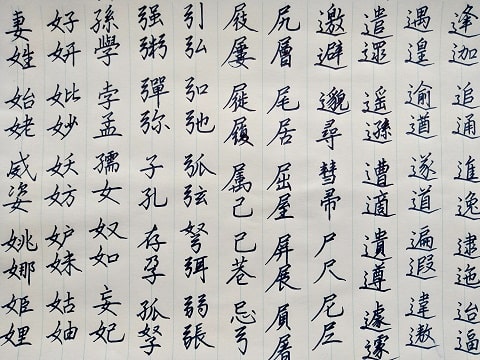 逢迦追通進逸逮迤迨逼
遇遑逾遒遂道遍遐違遨
遣遙遜遭適遺遵遽
邀避邈尋彗帚尸尺尼
尻層尾居屈屋屏展屓屠
屐屢屣履属己已巷忌弓
引弘弛弧弦弩弭弱張
强粥彈弥子孔存孕孤孥
孫學孛孟孺女奴如妄妃
好妍妣妙妖妨妒妹姑妯
妻姓始姥威姿姚娜姬娌